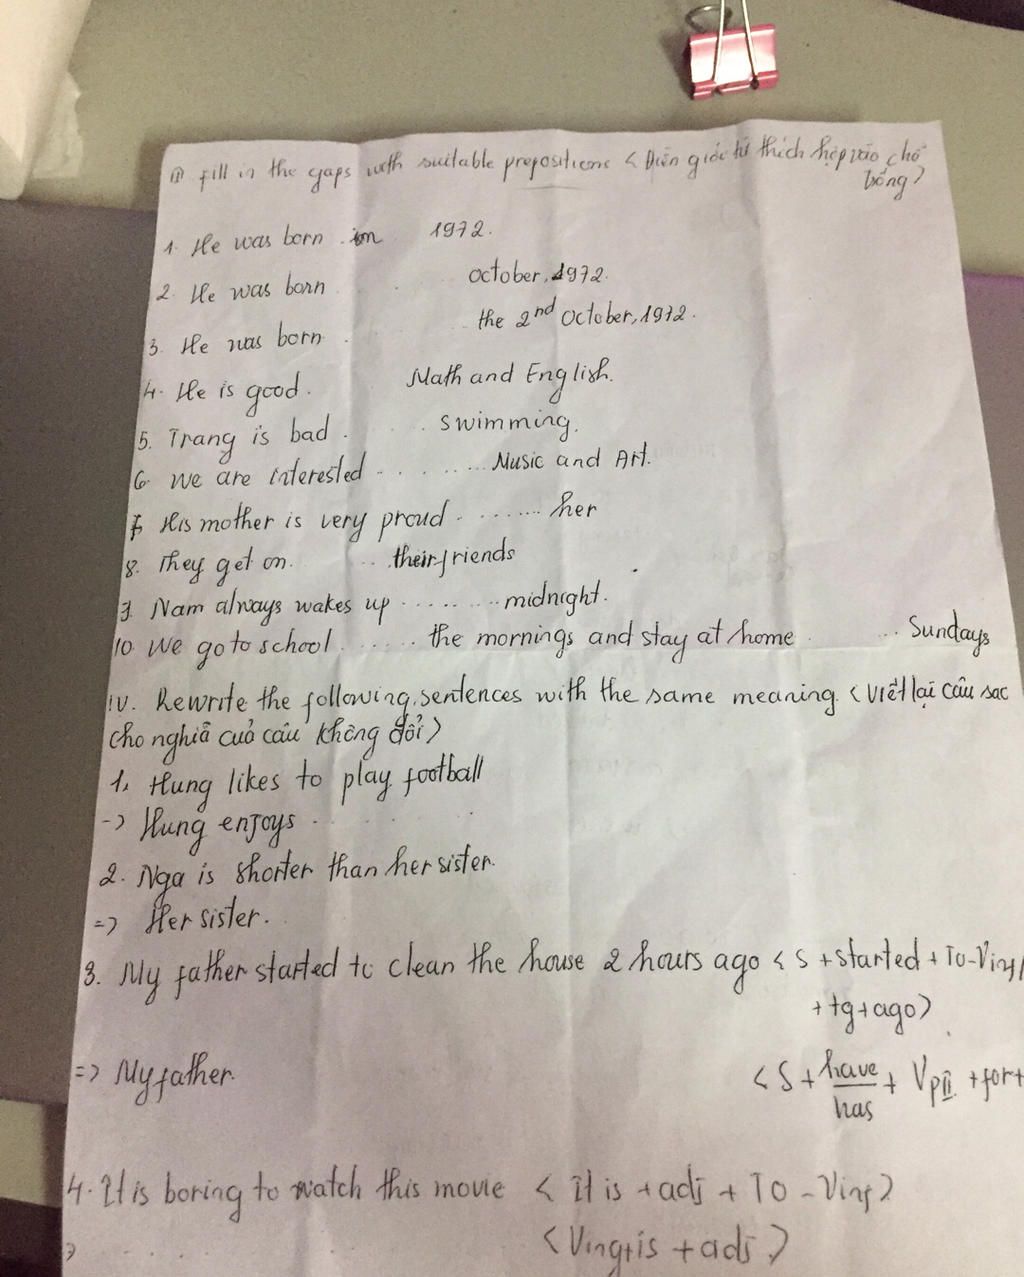 ① fill in the gaps with suitable prepositions < Điền giới từ thích hợp vào chỗ
trống >
1. He was born in 1972.
2. He was born ... October, 1972.
3. He was born ... the 2nd October, 1972.
4. He is good. Math and English.
5. Trang is bad ... swimming.
6. We are interested ......... Music and Art.
7. His mother is very proud ........ her
8. They get on ..... their friends
9. Nam always wakes up ......... midnight.
10. We go to school ...... the mornings and stay at home ... Sundays
IV. Rewrite the following sentences with the same meaning. < Viết lại câu sac
cho nghiã cuả câu không đổi >
1. Hung likes to play football
-> Hung enjoys ....
2. Nga is shorter than her sister.
=> Her sister.
3. My father started to clean the house 2 hours ago < S + started + To-Ving/
+ tg + ago >
=> My father.
< S + have/has + VpII. + for +
4. It is boring to watch this movie < it is + adj + To - Ving >
< Ving + is + adj >